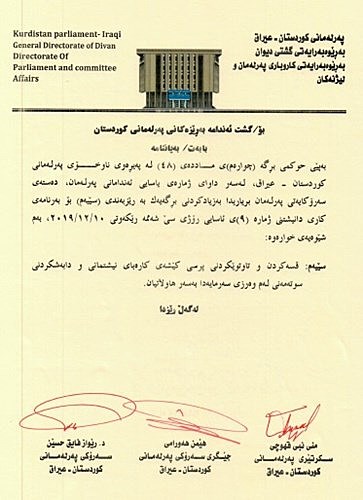 Kurdistan parliament- Iraqi
General Directorate of Divan
Directorate Of
Parliament and committee
Affairs
پەرلەمانی کوردستان - عیراق
بەڕێوەبەرایەتی گشتی دیوان
بەڕێوەبەرایەتی کاروباری پەرلەمان و
لیژنەکان
بۆ/ گشت ئەندامە بەڕێزەکانی پەرلەمانی کوردستان
بابەت/ بەیاننامە
بەپێی حوکمی بڕگە (چوارەم)ی ماددەی (٤٨) لە پەیڕەوی ناوخۆی پەرلەمانی
کوردستان - عیراق، لەسەر داوای ژمارەی یاسایی ئەندامانی پەرلەمان، دەستەی
سەرۆکایەتی پەرلەمان بڕیاریدا بەزیادکردنی بڕگەیەک بە ڕێزبەندی (سێیەم) بۆ بەرنامەی
کاری دانیشتنی ژمارە (٩)ی ئاسایی ڕۆژی سێ شەممە ڕێکەوتی ٢٠١٩/١٢/١٠، بەم
شێوەیەی خوارەوە:
سێیەم: قسەکردن و تاوتوێکردنی پرسی کێشەی کارەبای نیشتمانی و دابەشکردنی
سوتەمەنی لەم وەرزی سەرمایەدا بەسەر هاوڵاتیان.
لەگەڵ ڕێزدا
منى نبی قهوچی
سکرتێری پەرلەمانی
کوردستان - عیراق
هێمن هەورامی
جێگری سەرۆکی پەرلەمانی
کوردستان - عیراق
د. ڕێواز فایق حسێن
سەرۆکی پەرلەمانی
کوردستان - عیراق